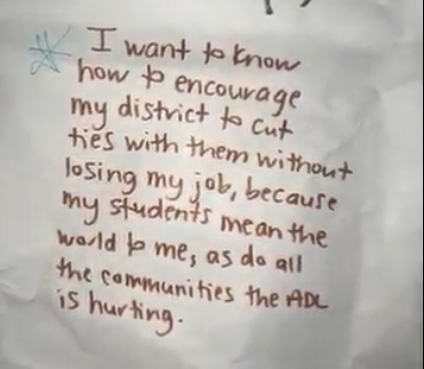 I want to know
how to encourage
my district to cut
ties with them without
losing my job, because
my students mean the
world to me, as do all
the communities the ADL
is hurting.